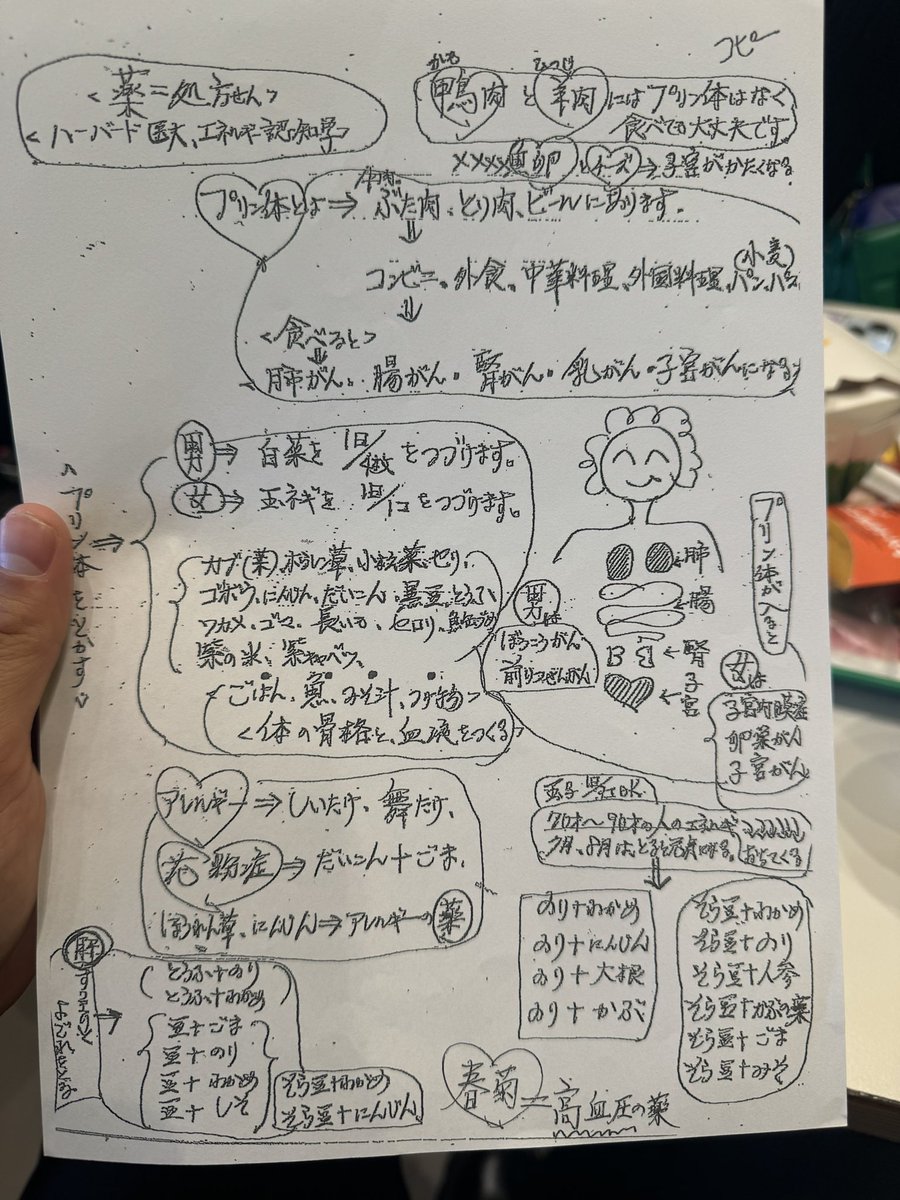 コピー
<薬=処方せん>
<ハーバード医大、エネルギー認知学>
かも ひつじ
鴨肉と羊肉にはプリン体はなく
食べても大丈夫です
××××魚卵 チーズ→子宮がかたくなる
牛肉、
プリン体とは⇒ぶた肉、とり肉、ビールにあります。
⇓
(小麦)
コンビニ。外食。中華料理、外国料理、パン、パスタ
⇓
<食べると>
⇓
肺がん。腸がん。腎がん。乳がん。子宮がんになる
<プリン体をとかす>
⇒
男⇒白菜を1日/4枚をつづけます。
女⇒玉ネギを1日/1コをつづけます。
カブ(葉)、ほうれん草、小松菜、せり、
ゴボウ、にんじん、だいこん、黒豆、とうふ
ワカメ、ゴマ、長いも、セロリ、
紫キャベツ、
ごはん、魚、みそ汁、つけ物
<体の骨格と、血液をつくる>
プリン体が入ると
←肺
←腸
←腎
←子宮
男は
ぼうこうがん、
前りつせんがん
女は
子宮内膜症
卵巣がん
子宮がん
アレルギー⇒しいたけ、舞たけ、
花粉症⇒だいこん+ごま、
ほうれん草、にんじん⇒アレルギーの薬
70才〜90才の人のエネルギー
7月、8月は、とると元気になる。
おちてくる
⇓
のり+わかめ
のり+にんじん
のり+大根
のり+かぶ
そら豆+わかめ
そら豆+のり
そら豆+人参
そら豆+かぶの葉
そら豆+ごま
そら豆+みそ
肝
→
とうふ+のり
とうふ+わかめ
豆+ごま
豆+のり
豆+わかめ
豆+しそ
そら豆+わかめ
そら豆+にんじん
春菊=高血圧の薬